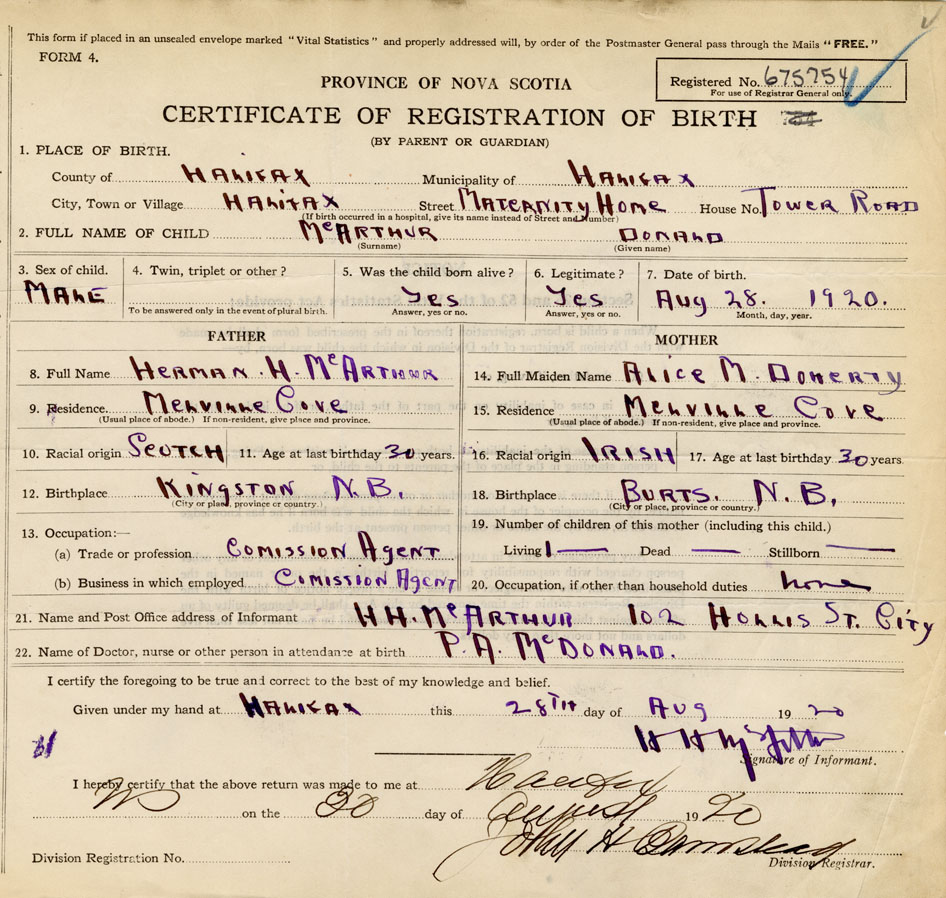 This form if placed in an unsealed envelope marked "Vital Statistics" and properly addressed will, by order of the Postmaster General pass through the Mails "FREE."
FORM 4.
PROVINCE OF NOVA SCOTIA
Registered No. 675754
For use of Registrar General only.
CERTIFICATE OF REGISTRATION OF BIRTH
(BY PARENT OR GUARDIAN)
1. PLACE OF BIRTH.
County of HALIFAX Municipality of HALIFAX
City, Town or Village HALIFAX Street MATERNITY HOME House No. TOWER ROAD
(If birth occurred in a hospital, give its name instead of Street and Number)
2. FULL NAME OF CHILD McARTHUR DONALD
(Surname) (Given name)
3. Sex of child. 4. Twin, triplet or other? 5. Was the child born alive? 6. Legitimate? 7. Date of birth.
MALE Yes Yes Aug 28. 1920.
To be answered only in the event of plural birth. Answer, yes or no. Answer, yes or no. Month, day, year.
FATHER MOTHER
8. Full Name HERMAN. H. McARTHUR 14. Full Maiden Name ALICE M. DOHERTY
9. Residence. MELVILLE COVE 15. Residence MELVILLE COVE
(Usual place of abode.) If non-resident, give place and province. (Usual place of abode.) If non-resident, give place and province.
10. Racial origin SCOTCH 11. Age at last birthday 30 years. 16. Racial origin IRISH 17. Age at last birthday 30 years.
12. Birthplace KINGSTON N.B. 18. Birthplace BURTS. N.B.
(City or place, province or country.) (City or place, province or country.)
13. Occupation:— 19. Number of children of this mother (including this child.)
(a) Trade or profession COMISSION AGENT Living 1 — Dead — Stillborn —
(b) Business in which employed COMISSION AGENT 20. Occupation, if other than household duties none
21. Name and Post Office address of Informant H H. McARTHUR 102 HOLLIS ST. CITY
22. Name of Doctor, nurse or other person in attendance at birth P. A. McDONALD.
I certify the foregoing to be true and correct to the best of my knowledge and belief.
Given under my hand at HALIFAX this 28TH day of AUG 1920
H H
Signature of Informant.
I hereby certify that the above return was made to me at Halifax
NS on the 30 day of August 1920
John H
Division Registration No. Division Registrar.